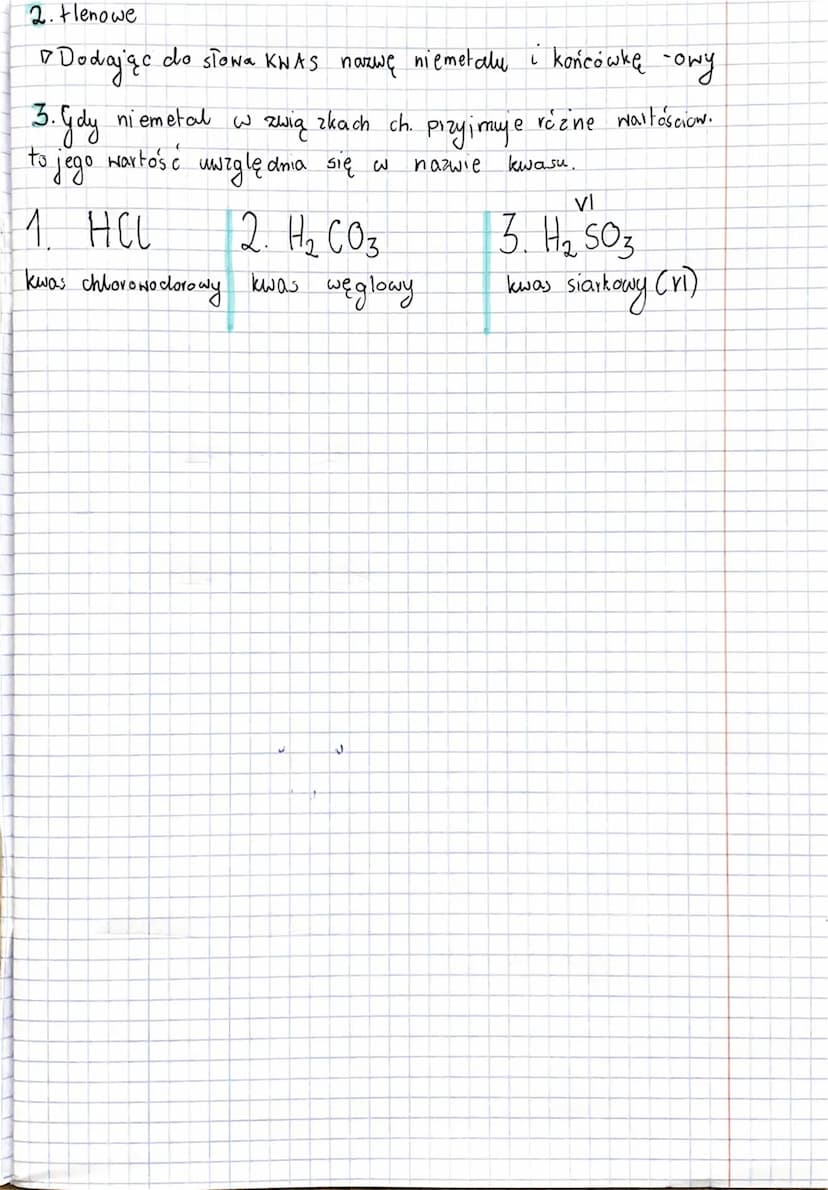 2. tlenowe
▷ Dodając do słowa KWAS nazwę niemetalu i końcówkę -owy
3. Gdy niemetal w związkach ch. przyjmuje różne wartościow.
to jego wartość uwzględnia się w nazwie kwasu.
1. HCl 2. H₂CO₃ 3. H₂SO₃
VI
kwas chlorowodorowy kwas węglowy kwas siarkowy (VI)